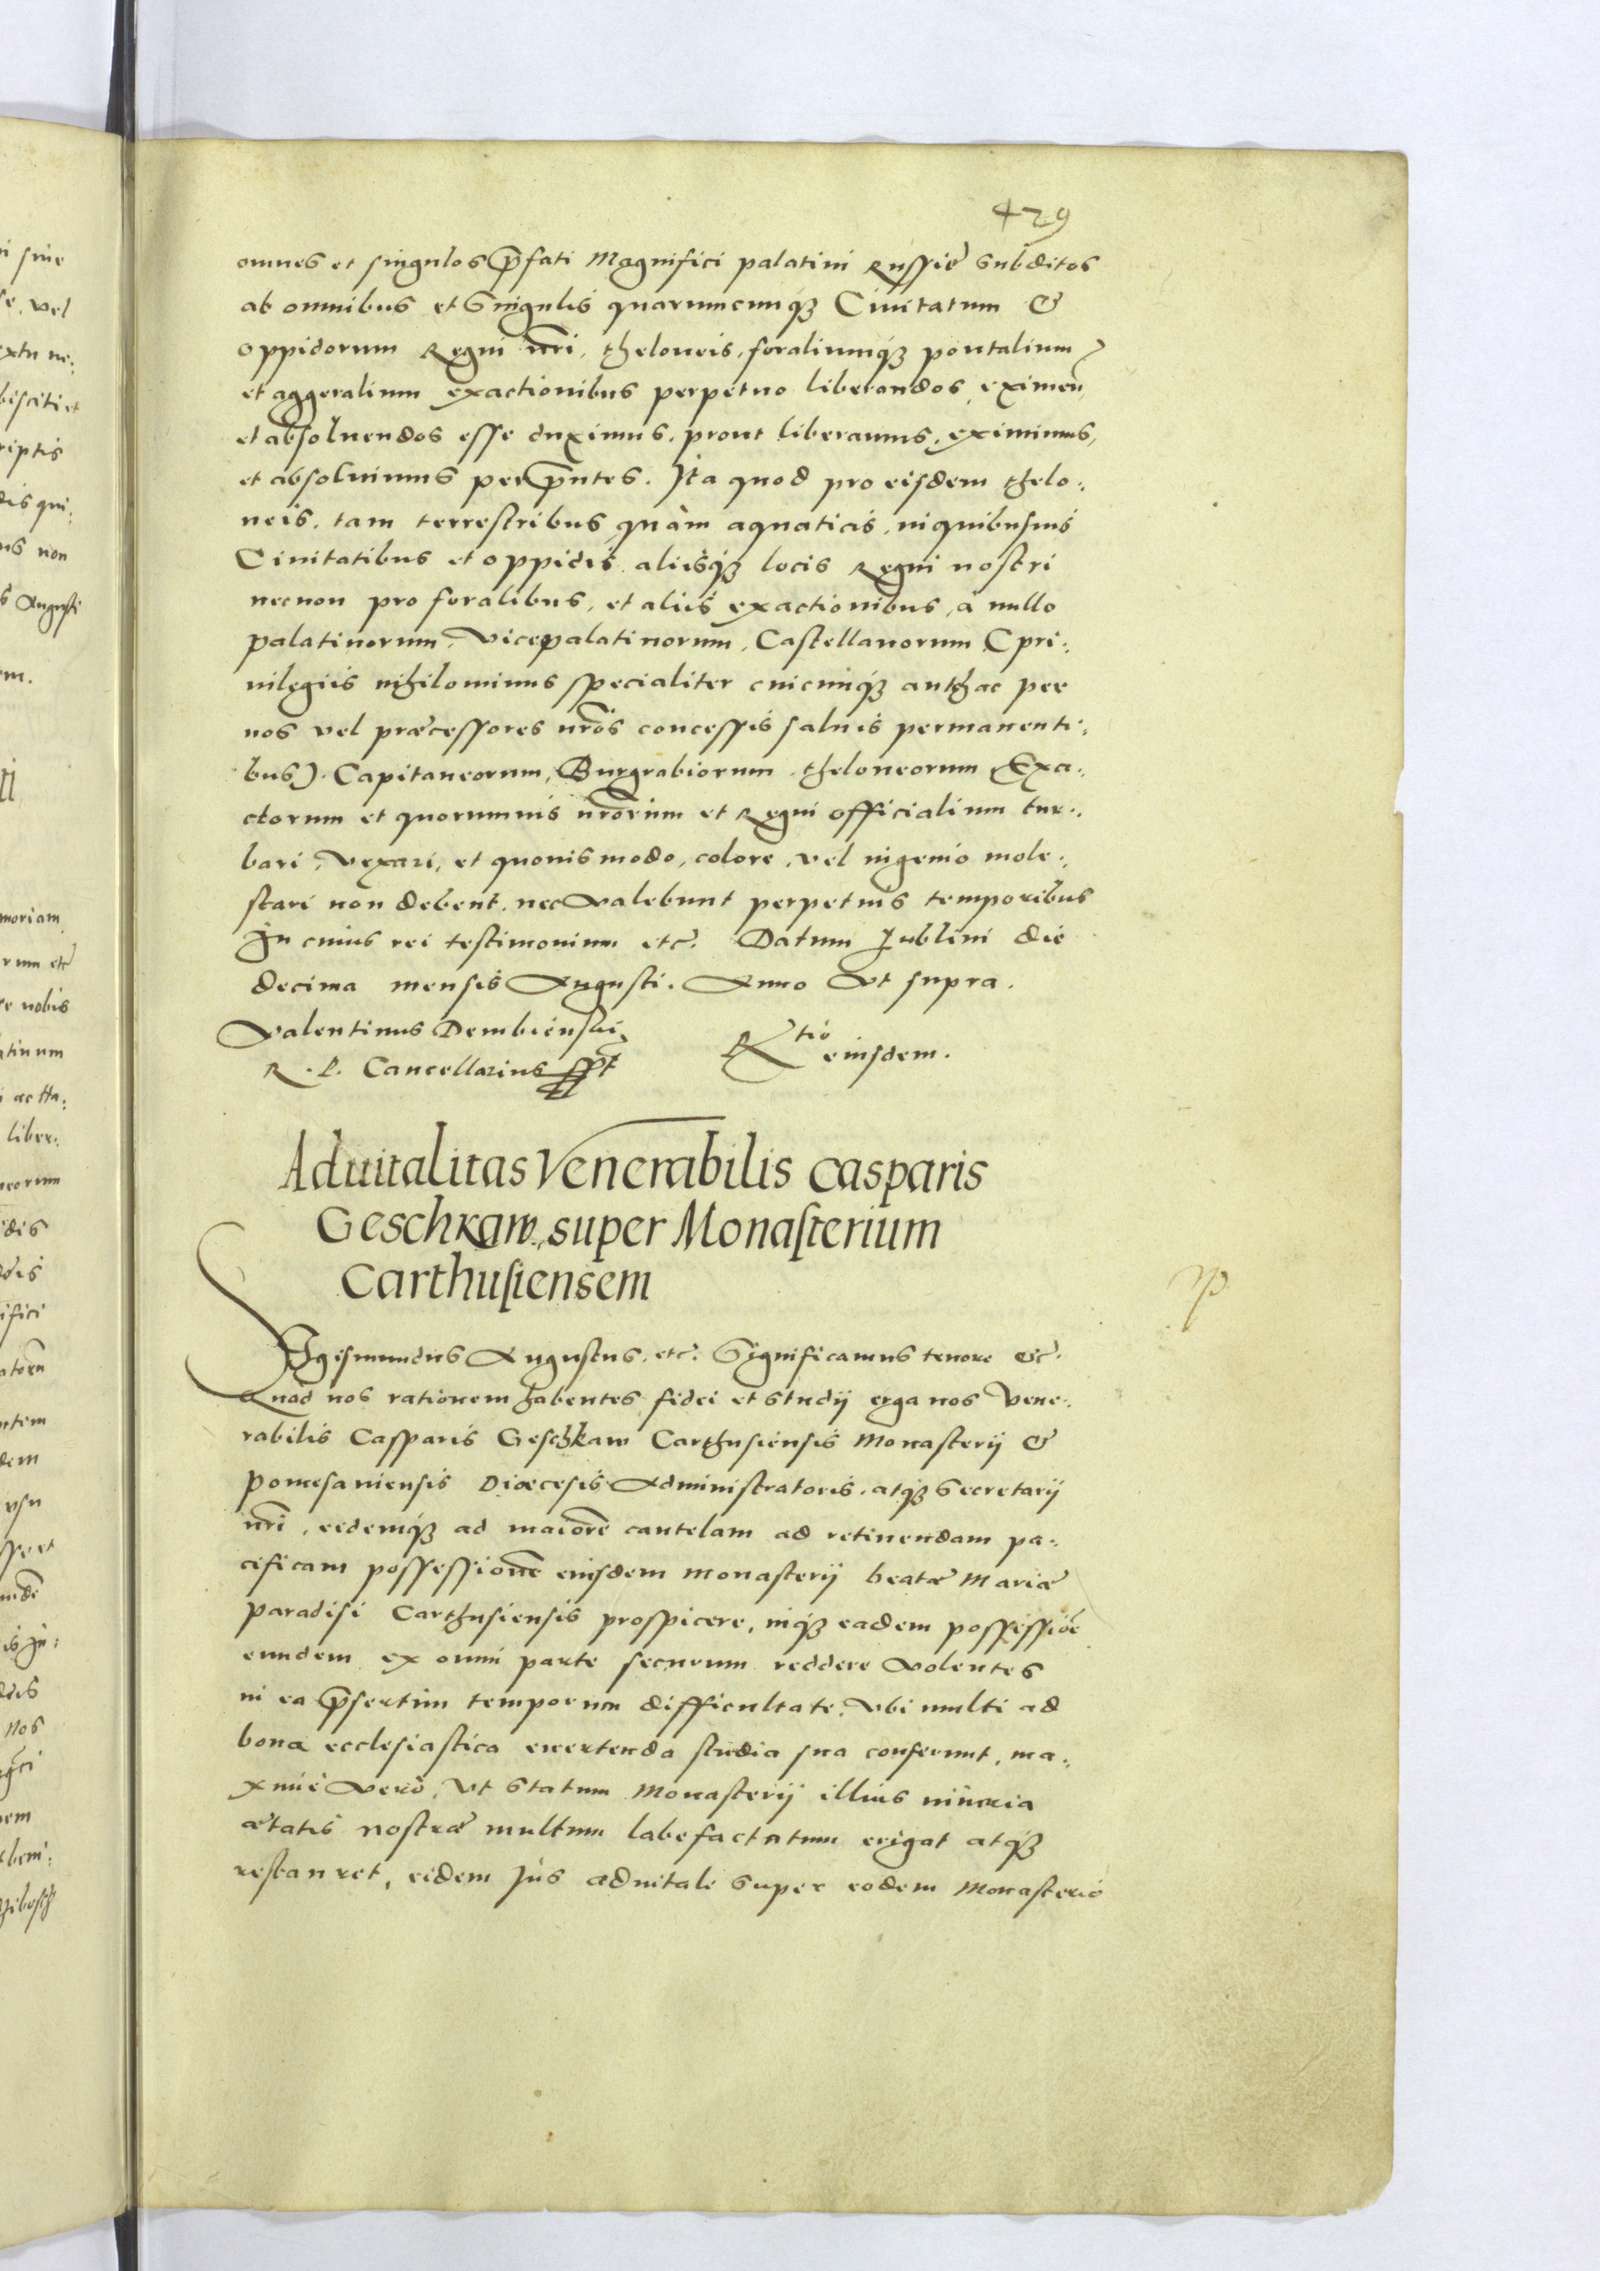 429
omnes et singulos p̄fati Magnifici palatini Russiæ subditos
ab omnibus et Singulis quarumcunq3 Ciuitatum &
oppidorum Regni nr̄i, theloneis, foraliumq3 pontalium
et aggeralium exactionibus perpetuo liberandos, eximen̄
et absoluendos esse duximus, prout liberamus, eximimus,
et absoluimus per p̄ntes. Ita quod pro eisdem thelo:
neis, tam terrestribus quàm aquaticis, in quibusuis
Ciuitatibus et oppidis aliisq3 locis Regni nostri
necnon pro foralibus, et aliis exactionibus, à nullo
palatinorum, Vicepalatinorum, Castellanorum (pri:
uilegiis nihilominus specialiter cuicunq3 anthac per
nos vel præcessores nr̄os concessis saluis permanenti:
bus). Capitaneorum, Burgrabiorum, theloneorum Exa:
ctorum et quorumuis nr̄orum et Regni officialium tur:
bari, vexari, et quouis modo, colore, vel ingenio mole:
stari non debent, nec valebunt perpetuis temporibus
In cuius rei testimonium etc. Datum Lublini die
decima mensis Augusti. Anno Vt supra.
Valentinus Dembienski
R. P. Cancellarius sspt
Rtio
eiusdem.
Aduitalitas Venerabilis Casparis
Geschkaw, super Monasterium
Carthusiensem
Sigismundus Augustus. etc. Significamus tenore &c.
Quod nos rationem habentes fidei et studij erga nos Vene:
rabilis Casparis Geschkaw Carthusiensis Monasterij &
Pomesaniensis Diœcesis Administratoris, atq3 Secretarij
nr̄i, eidemq3 ad maiorē cautelam ad retinendam pa:
cificam possessionē eiusdem monasterij beatæ Mariæ
paradisi Carthusiensis prospicere, inq3 eadem possessiōe
eundem ex omni parte securum reddere volentes
in ea p̄sertim temporum difficultate, vbi multi ad
bona ecclesiastica euertenda studia sua conferunt, ma:
ximè verò, vt statum Monasterij illius iniuria
ætatis nostræ multum labefactatum erigat atq3
restauret, eidem Jus aduitale super eodem Monasterio